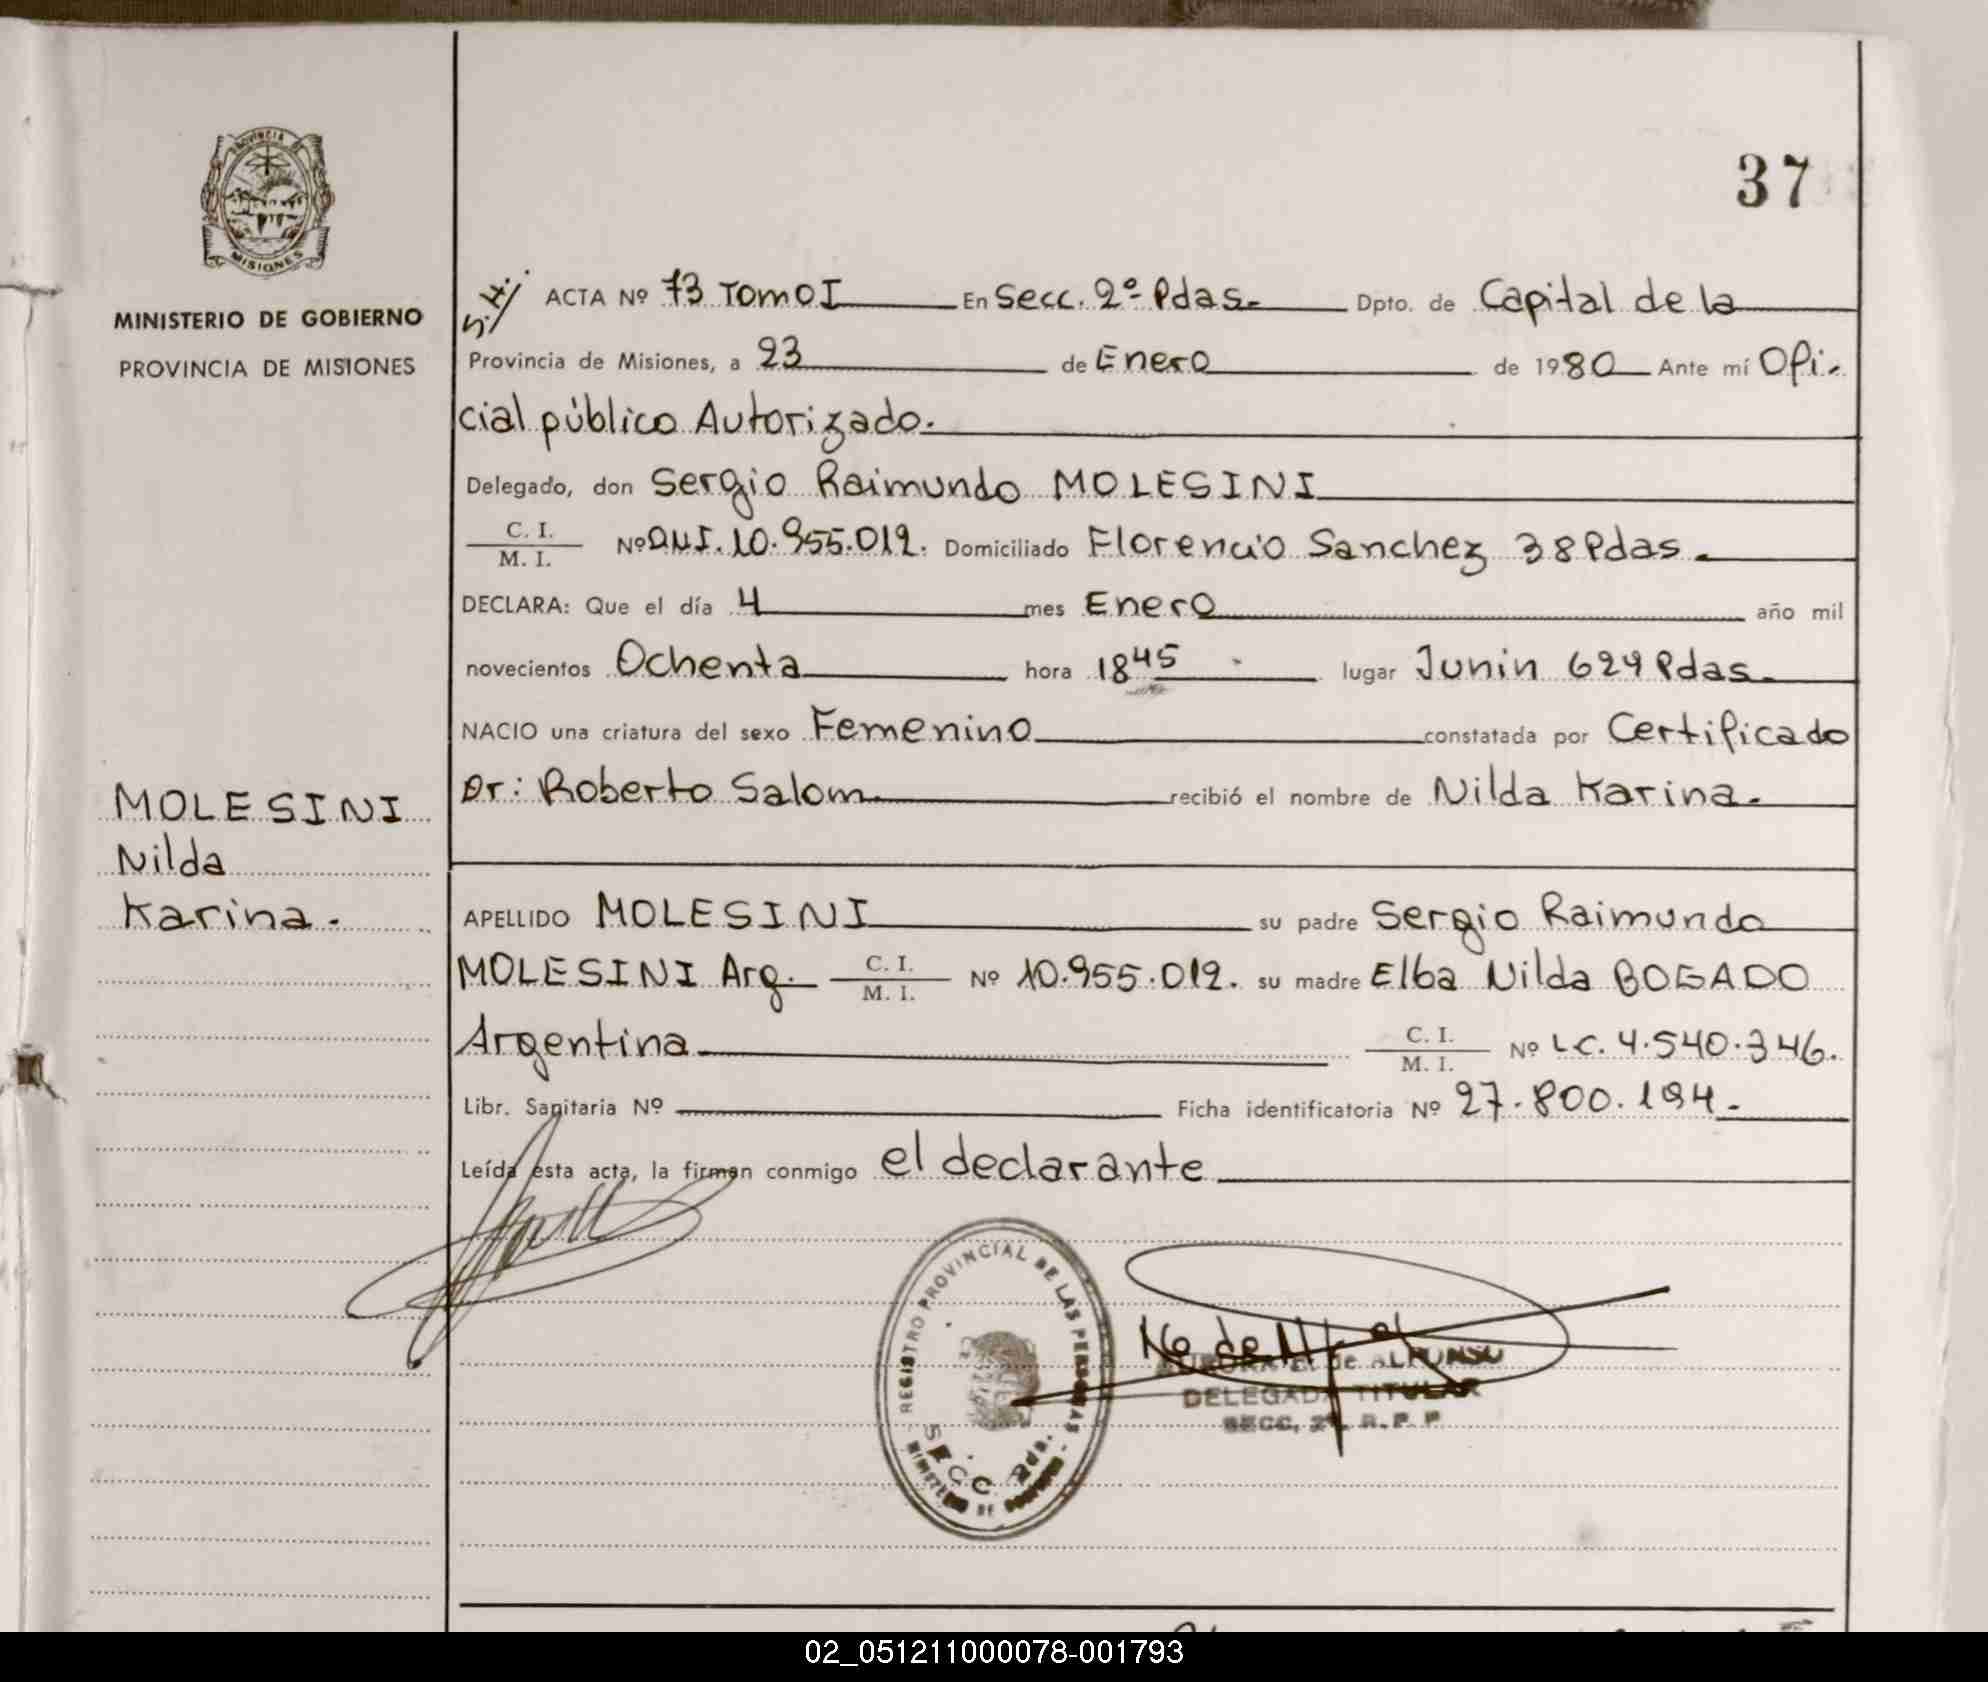 37
PROVINCIA DE
MISIONES
MINISTERIO DE GOBIERNO
PROVINCIA DE MISIONES
ACTA Nº 73 Tomo I En Secc. 2º Pdas. Dpto. de Capital de la
Provincia de Misiones, a 23 de Enero de 1980 Ante mí Ofi-
cial público Autorizado.
Delegado, don Sergio Raimundo MOLESINI
C. I.
M. I. Nº DNI. 10.955.012. Domiciliado Florencio Sanchez 38 Pdas.
DECLARA: Que el día 4 mes Enero año mil
novecientos Ochenta hora 18 45 lugar Junin 624 Pdas.
NACIO una criatura del sexo Femenino constatada por Certificado
Dr: Roberto Salom. recibió el nombre de Nilda Karina.
MOLESINI
Nilda
Karina.
APELLIDO MOLESINI su padre Sergio Raimundo
MOLESINI Arg. C. I. M. I. Nº 10.955.012. su madre Elba Nilda BOGADO
Argentina C. I. M. I. Nº LC. 4.540.346.
Libr. Sanitaria Nº Ficha identificatoria Nº 27.800.194.
Leída esta acta, la firman conmigo el declarante
REGISTRO PROVINCIAL DE LAS PERSONAS
SECC. 2da.
MINISTERIO DE GOBIERNO
de ALFONSO
DELEGADA TITULAR
SECC. 2ª R. P. P.
02_051211000078-001793